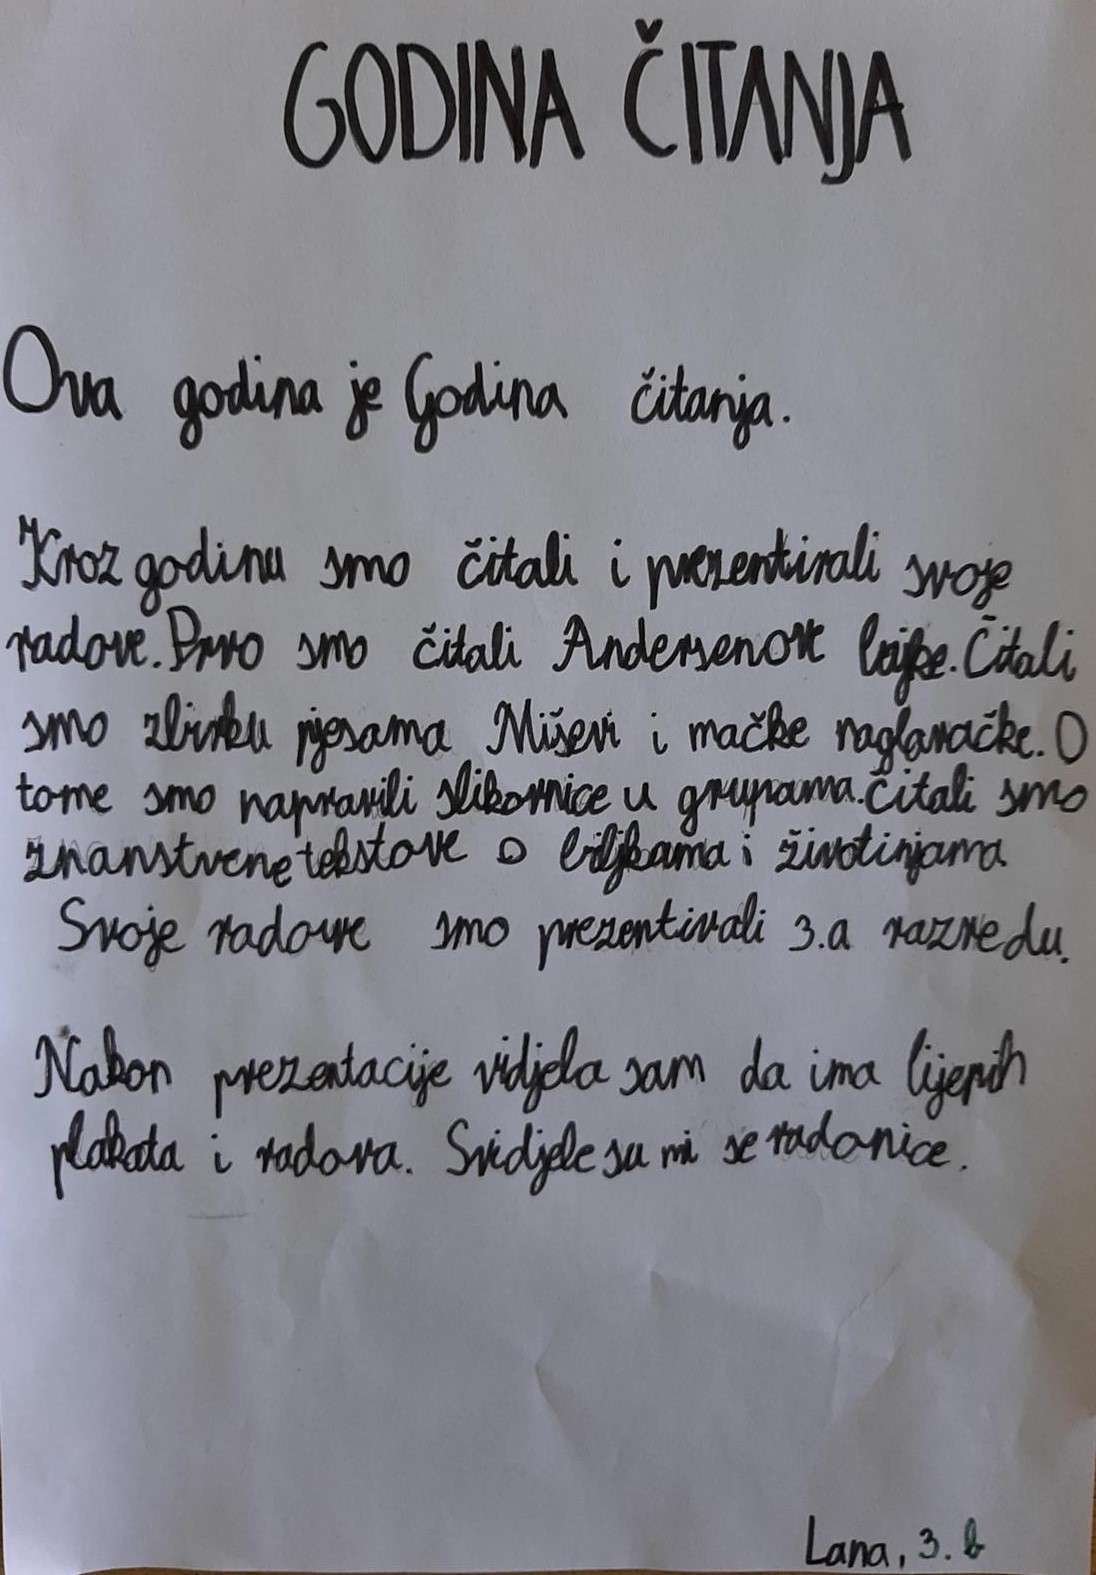 GODINA ČITANJA
Ova godina je Godina čitanja.
Kroz godinu smo čitali i prezentirali svoje
radove. Prvo smo čitali Andersenove bajke. Čitali
smo zbirku pjesama Miševi i mačke naglavačke. O
tome smo napravili slikovnice u grupama. Čitali smo
znanstvene tekstove o biljkama i životinjama
Svoje radove smo prezentirali 3.a razredu.
Nakon prezentacije vidjela sam da ima lijepih
plakata i radova. Svidjele su mi se radonice.
Lana, 3. b